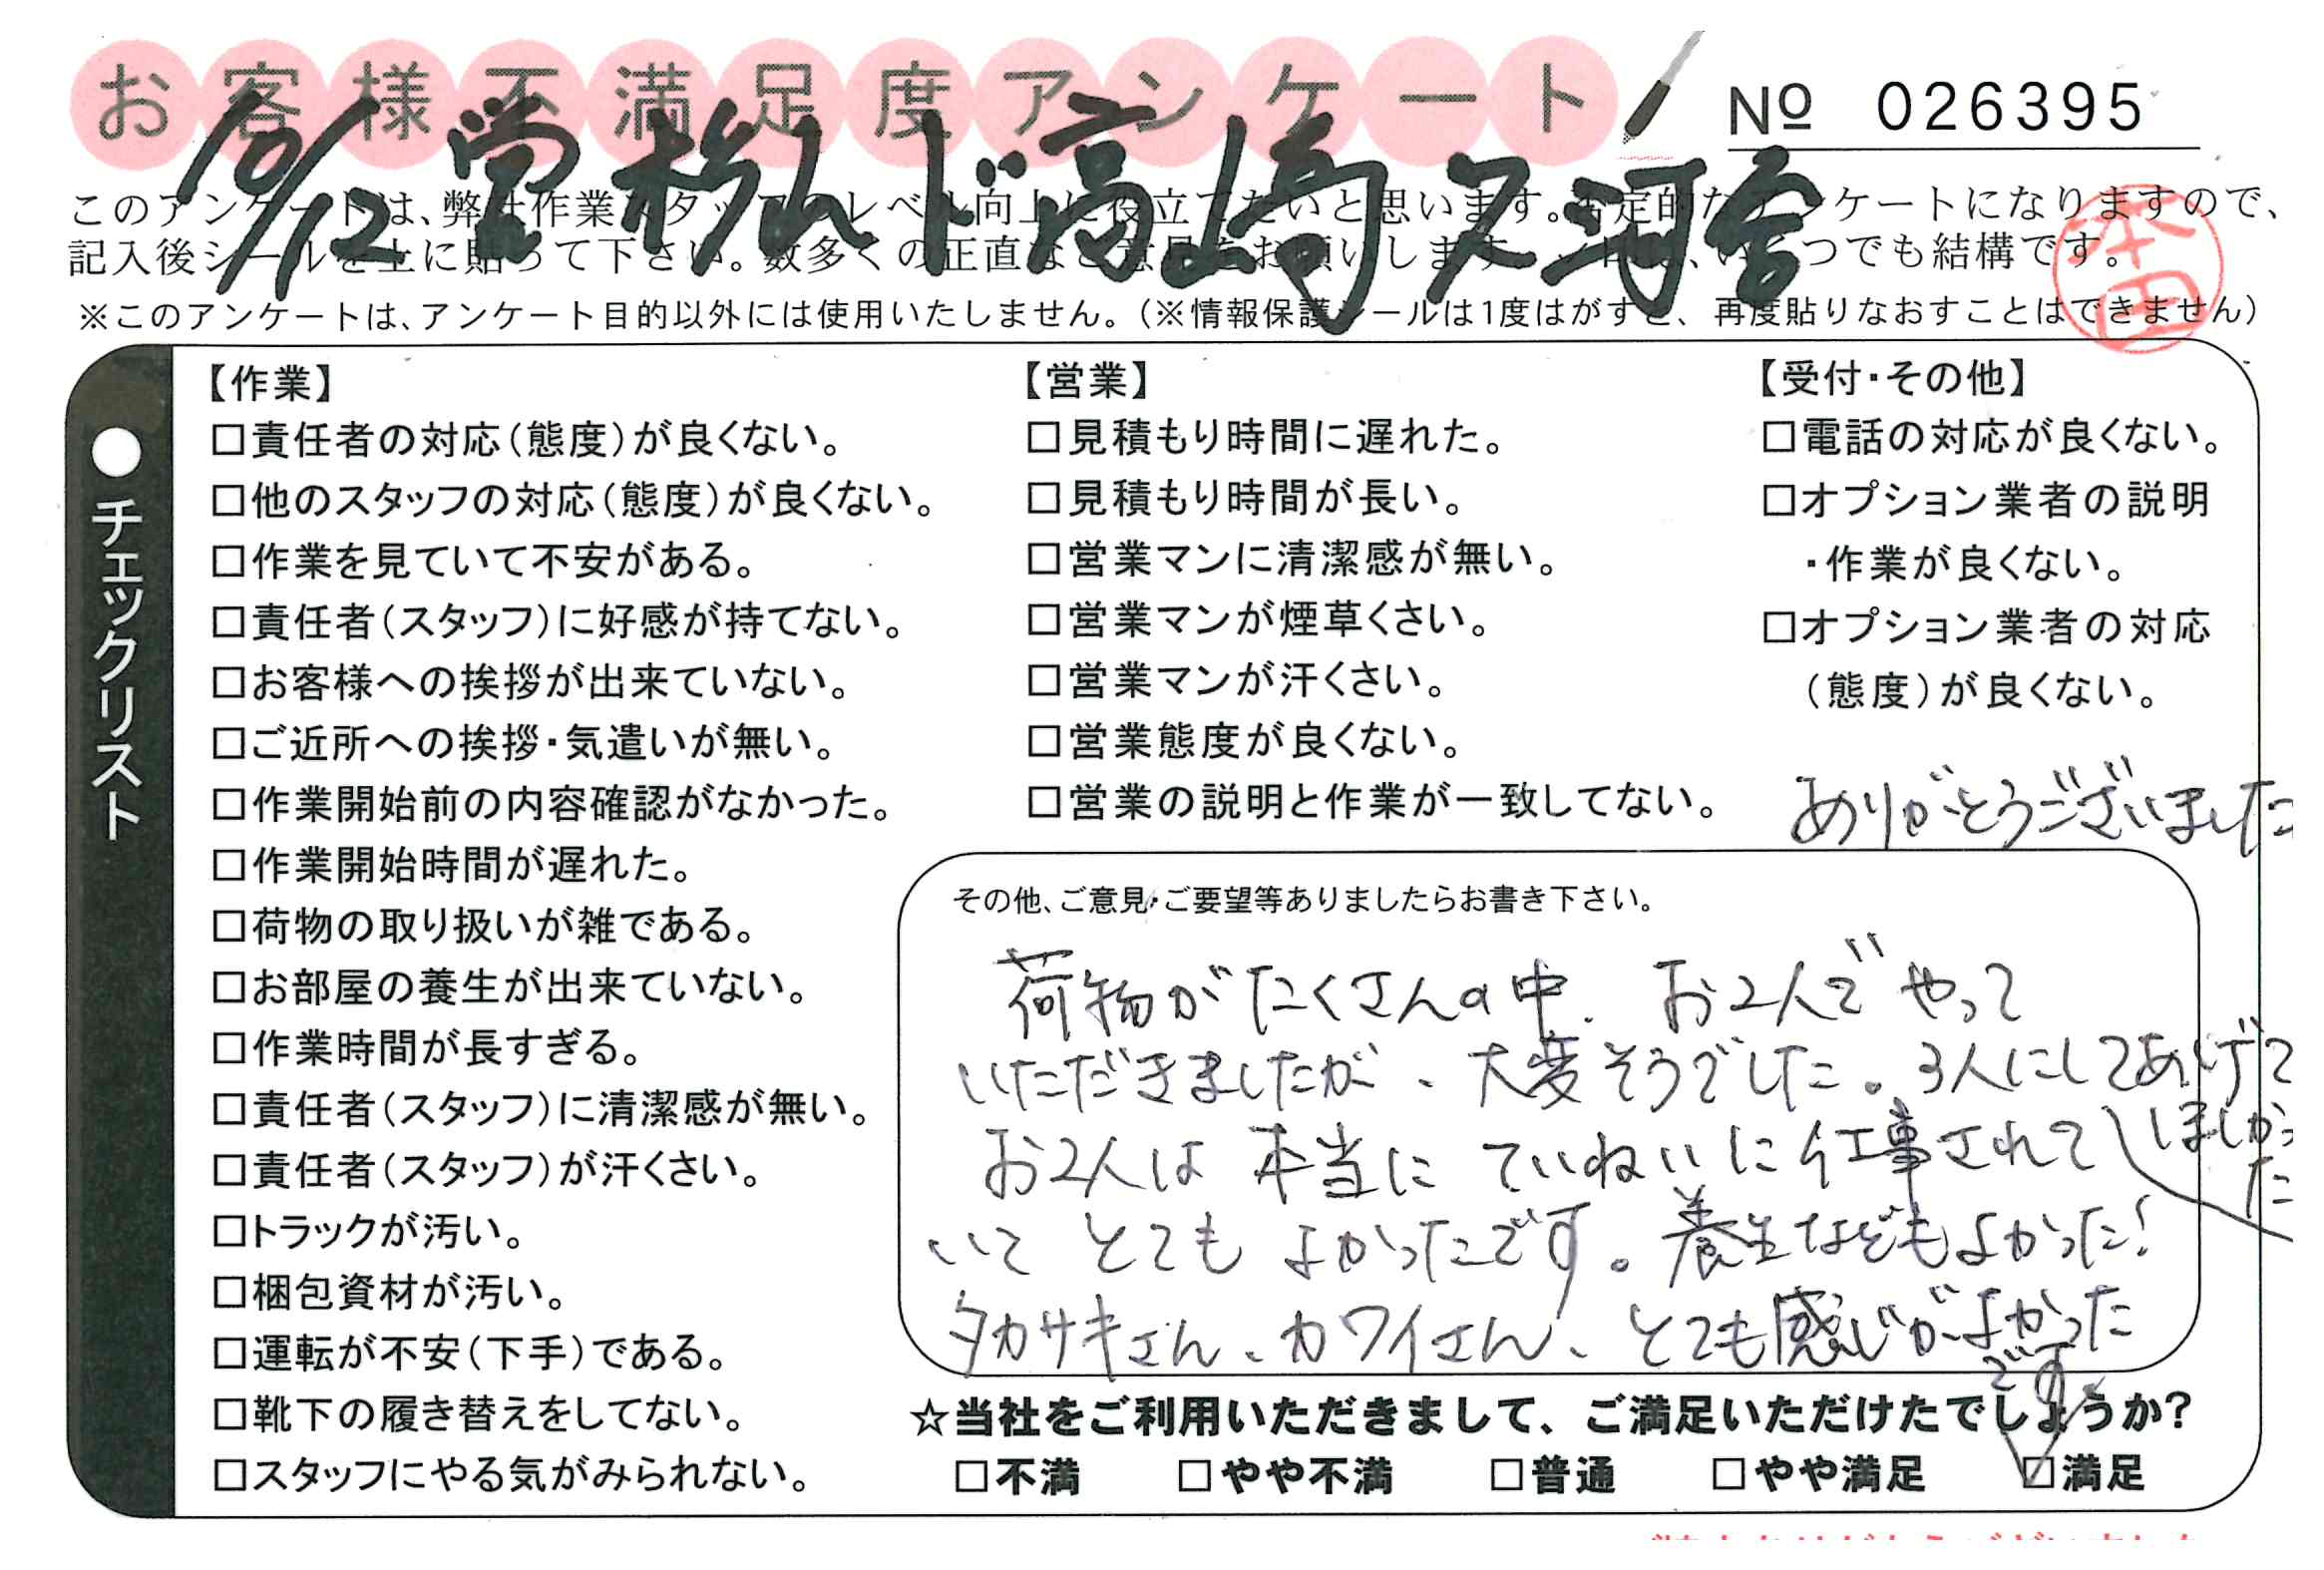 お客様不満足度アンケート
№ 026395
10/12 営 杉山 ド高崎 ス河合
このアンケートは、弊社作業スタッフのレベル向上に役立てたいと思います。否定的なアンケートになりますので、
記入後シールを上に貼って下さい。数多くの正直なご意見をお願いします。いくつでも結構です。
※このアンケートは、アンケート目的以外には使用いたしません。（※情報保護シールは1度はがすと、再度貼りなおすことはできません）
本田
●チェックリスト
【作業】
□責任者の対応（態度）が良くない。
□他のスタッフの対応（態度）が良くない。
□作業を見ていて不安がある。
□責任者（スタッフ）に好感が持てない。
□お客様への挨拶が出来ていない。
□ご近所への挨拶・気遣いが無い。
□作業開始前の内容確認がなかった。
□作業開始時間が遅れた。
□荷物の取り扱いが雑である。
□お部屋の養生が出来ていない。
□作業時間が長すぎる。
□責任者（スタッフ）に清潔感が無い。
□責任者（スタッフ）が汗くさい。
□トラックが汚い。
□梱包資材が汚い。
□運転が不安（下手）である。
□靴下の履き替えをしてない。
□スタッフにやる気がみられない。
【営業】
□見積もり時間に遅れた。
□見積もり時間が長い。
□営業マンに清潔感が無い。
□営業マンが煙草くさい。
□営業マンが汗くさい。
□営業態度が良くない。
□営業の説明と作業が一致してない。
【受付・その他】
□電話の対応が良くない。
□オプション業者の説明
・作業が良くない。
□オプション業者の対応
（態度）が良くない。
ありがとうございました
その他、ご意見・ご要望等ありましたらお書き下さい。
荷物がたくさんの中、お2人でやって
いただきましたが、大変そうでした。3人にしてあげて
ほしかっ
た
お2人は 本当に ていねいに仕事されて
いて とても よかったです。養生などもよかった！
タカサキさん、カワイさん、とても感じがよかった
です。
☆当社をご利用いただきまして、ご満足いただけたでしょうか?
□不満 □やや不満 □普通 □やや満足 ☑満足